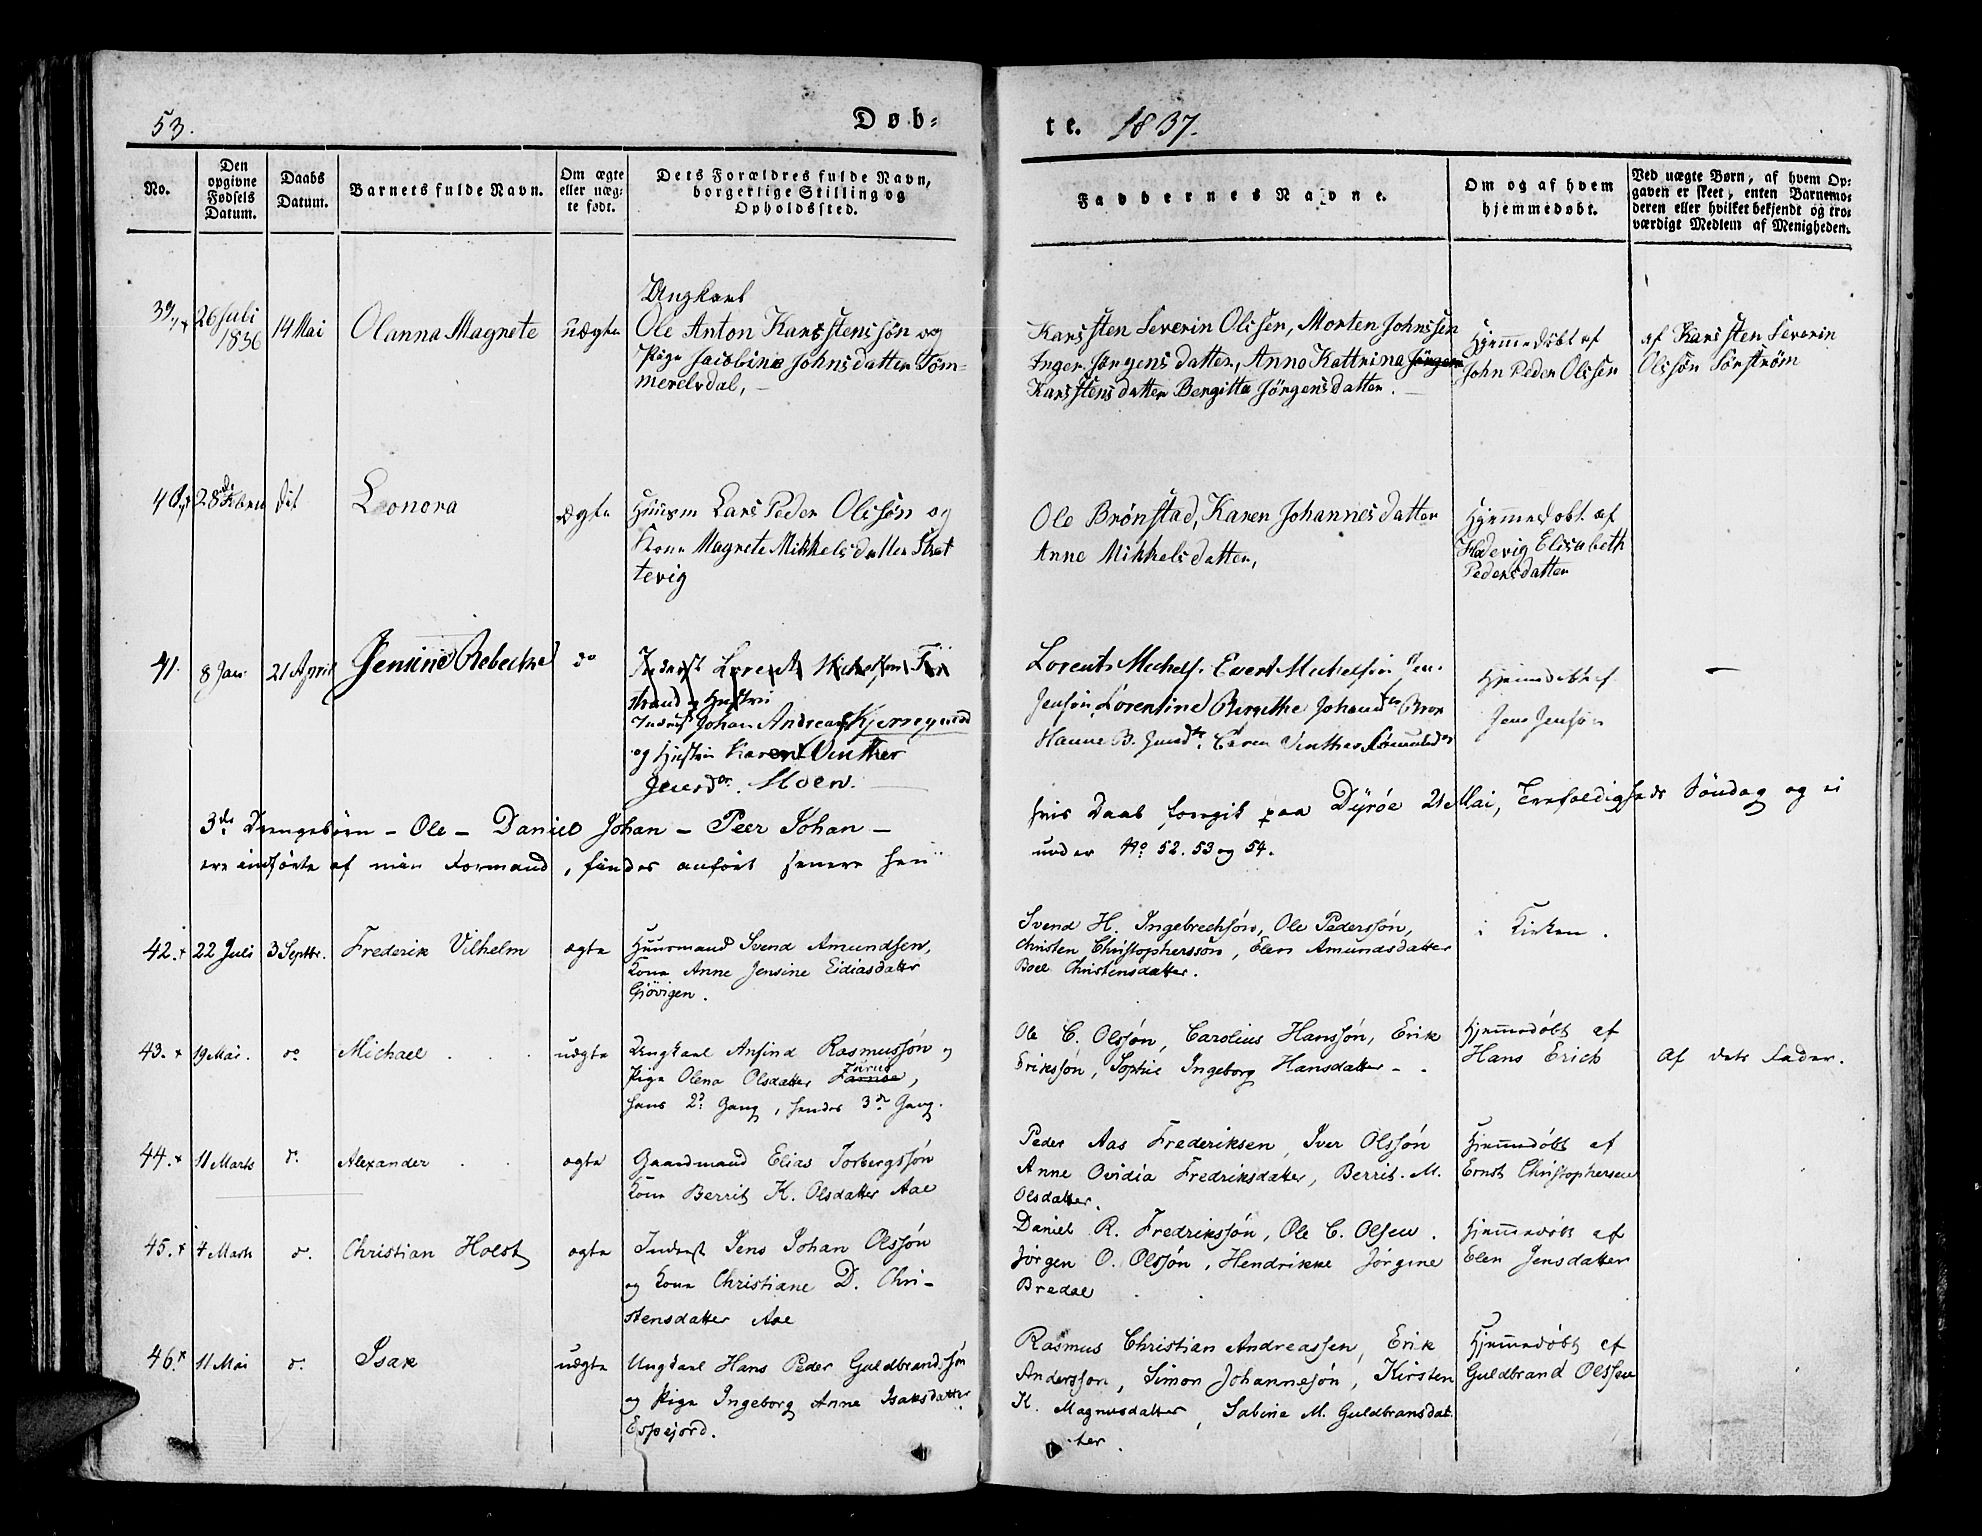 53.
Døb-
te. 1837.
No.
Den
opgivne
Fødsels
Datum.
Daabs
Datum.
Barnets fulde Navn.
Om ægte
eller uæg-
te født.
Dets Forældres fulde Navn,
borgerlige Stilling og
Opholdssted.
Faddernes Navne.
Om og af hvem
hjemmedøbt.
Ved uægte Børn, af hvem Op-
gaven er skeet, enten Barnemo-
deren eller hvilket bekjendt og tro-
værdigt Medlem af Menigheden.
39. 26 Juli
1836
14 Mai
Olanna Magnete
uægte
Ungkarl
Ole Anton Karsstenssøn og
Pige Jacobina Johnsdatter Töm-
merelvdal,
Karssten Severin Olssen, Morten Johnssen
Inger Jørgensdatter, Anna Kattrina
Karsstensdatter Bergitta Jörgensdatter.
Hjemmedöbt af
John Peder Olssen
af Karssten Severin
Olssøn Sörstrøm
40. 28de Febru
dit
Leonora
ægte
Huusm Lars Peder Olssøn og
Kone Magrete Mikkelsdatter Skat
tevig
Ole Brønstad, Karen Johannesdatter
Anne Mikkelsdatter,
Hjemmedøbt af
Hedevig Elisabeth
Pedersdatter
41.
8 Jan.
21 April
Jensine Rebecke
do
strand og Hustru
Inderst Johan Andreas
og Hustru Karen Vinther
Jensdr. Moen.
Lorents Michels. Evert Michelsøn
Jensøn, Lorentine Birgithe Johansdtr
Hanne B.
Hjemmedøbt af
Jens Jensøn
3de Drengebørn - Ole - Daniel Johan - Peer Johan -
ere indførte af min Formand, findes anført senere hen
hvis Daab foregik paa Dyrøe 21 Mai, Trefoldigheds Søndag og ei
under No 52. 53 og 54.
42. 22 Juli
3 Septbr.
Frederik Vilhelm
ægte
Huusmand Svend Amundsen,
Kone Anne Jensine Eidiasdatter
Gjövigen.
Svend H. Ingebrechtsön, Ole Pederssön,
Christen Christopherssøn, Elen Amundsdatter
Boel Christensdatter.
i Kirken.
43. 19 Mai.
do
Michael
uægte
Ungkarl Arnfind Rasmussøn og
Pige Olena Olsdatter
hans 2d Gang, hendes 3de Gang.
Ole C. Olssøn, Carolius Hanssøn, Erik
Erikssøn, Sophie Ingeborg Hansdatter
Hjemmedøbt af
Hans Erich
Af dets Fader.
44. 11 Marts
do
Alexander
ægte
Gaardmand Elias Torbergssøn
Kone Berrit K. Olsdatter Aae
Peder Aas Frederiksen, Iver Olssøn
Anne Ovidia Fredriksdatter, Berrit. M.
Olsdatter.
Hjemmedøbt af
Ernst Christophersen
45. 4 Marts
do
Christian Holst
ægte
Inderst Jens Johan Olssøn
og Kone Christiane D. Chri-
stensdatter Aae
Daniel R. Fredrikssøn, Ole C. Olsen.
Jørgen O. Olssøn, Hendrikke Jørgine
Bredal
Hjemmedøbt af
Elen Jensdatter
46. 11 Mai
do
Isak
uægte
Ungkarl Hans Peder Guldbrandssøn
og Pige Ingeborg Anne Isaksdatter
Espejord.
Rasmus Christian Andreassen, Erik
Andersson, Simon Johannesøn, Kirsten
K. Magnusdatter, Sabine M. Guldbransdat
ter.
Hjemmedøbt af
Guldbrand Olssen